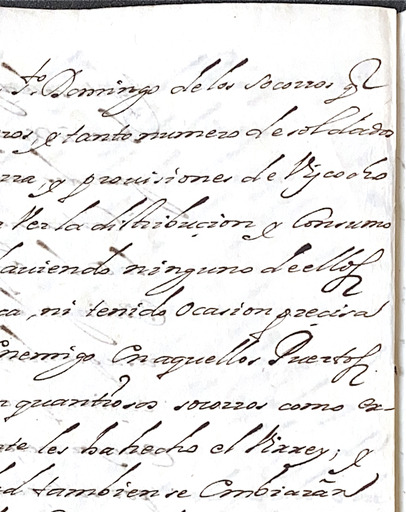 to. Domingo de los socorros q
ros, y tanto numero de soldado
rra, y provisiones de Vizcocho
Ver la distribuçion y Consumo
haviendo ninguno de ellos
ca, ni tenido Ocasion preçisa
Enemigo, En aquellos Puertos
quantiosos socorros como ex-
te les ha hecho el Virrey; y
d tambien se Embiarãn